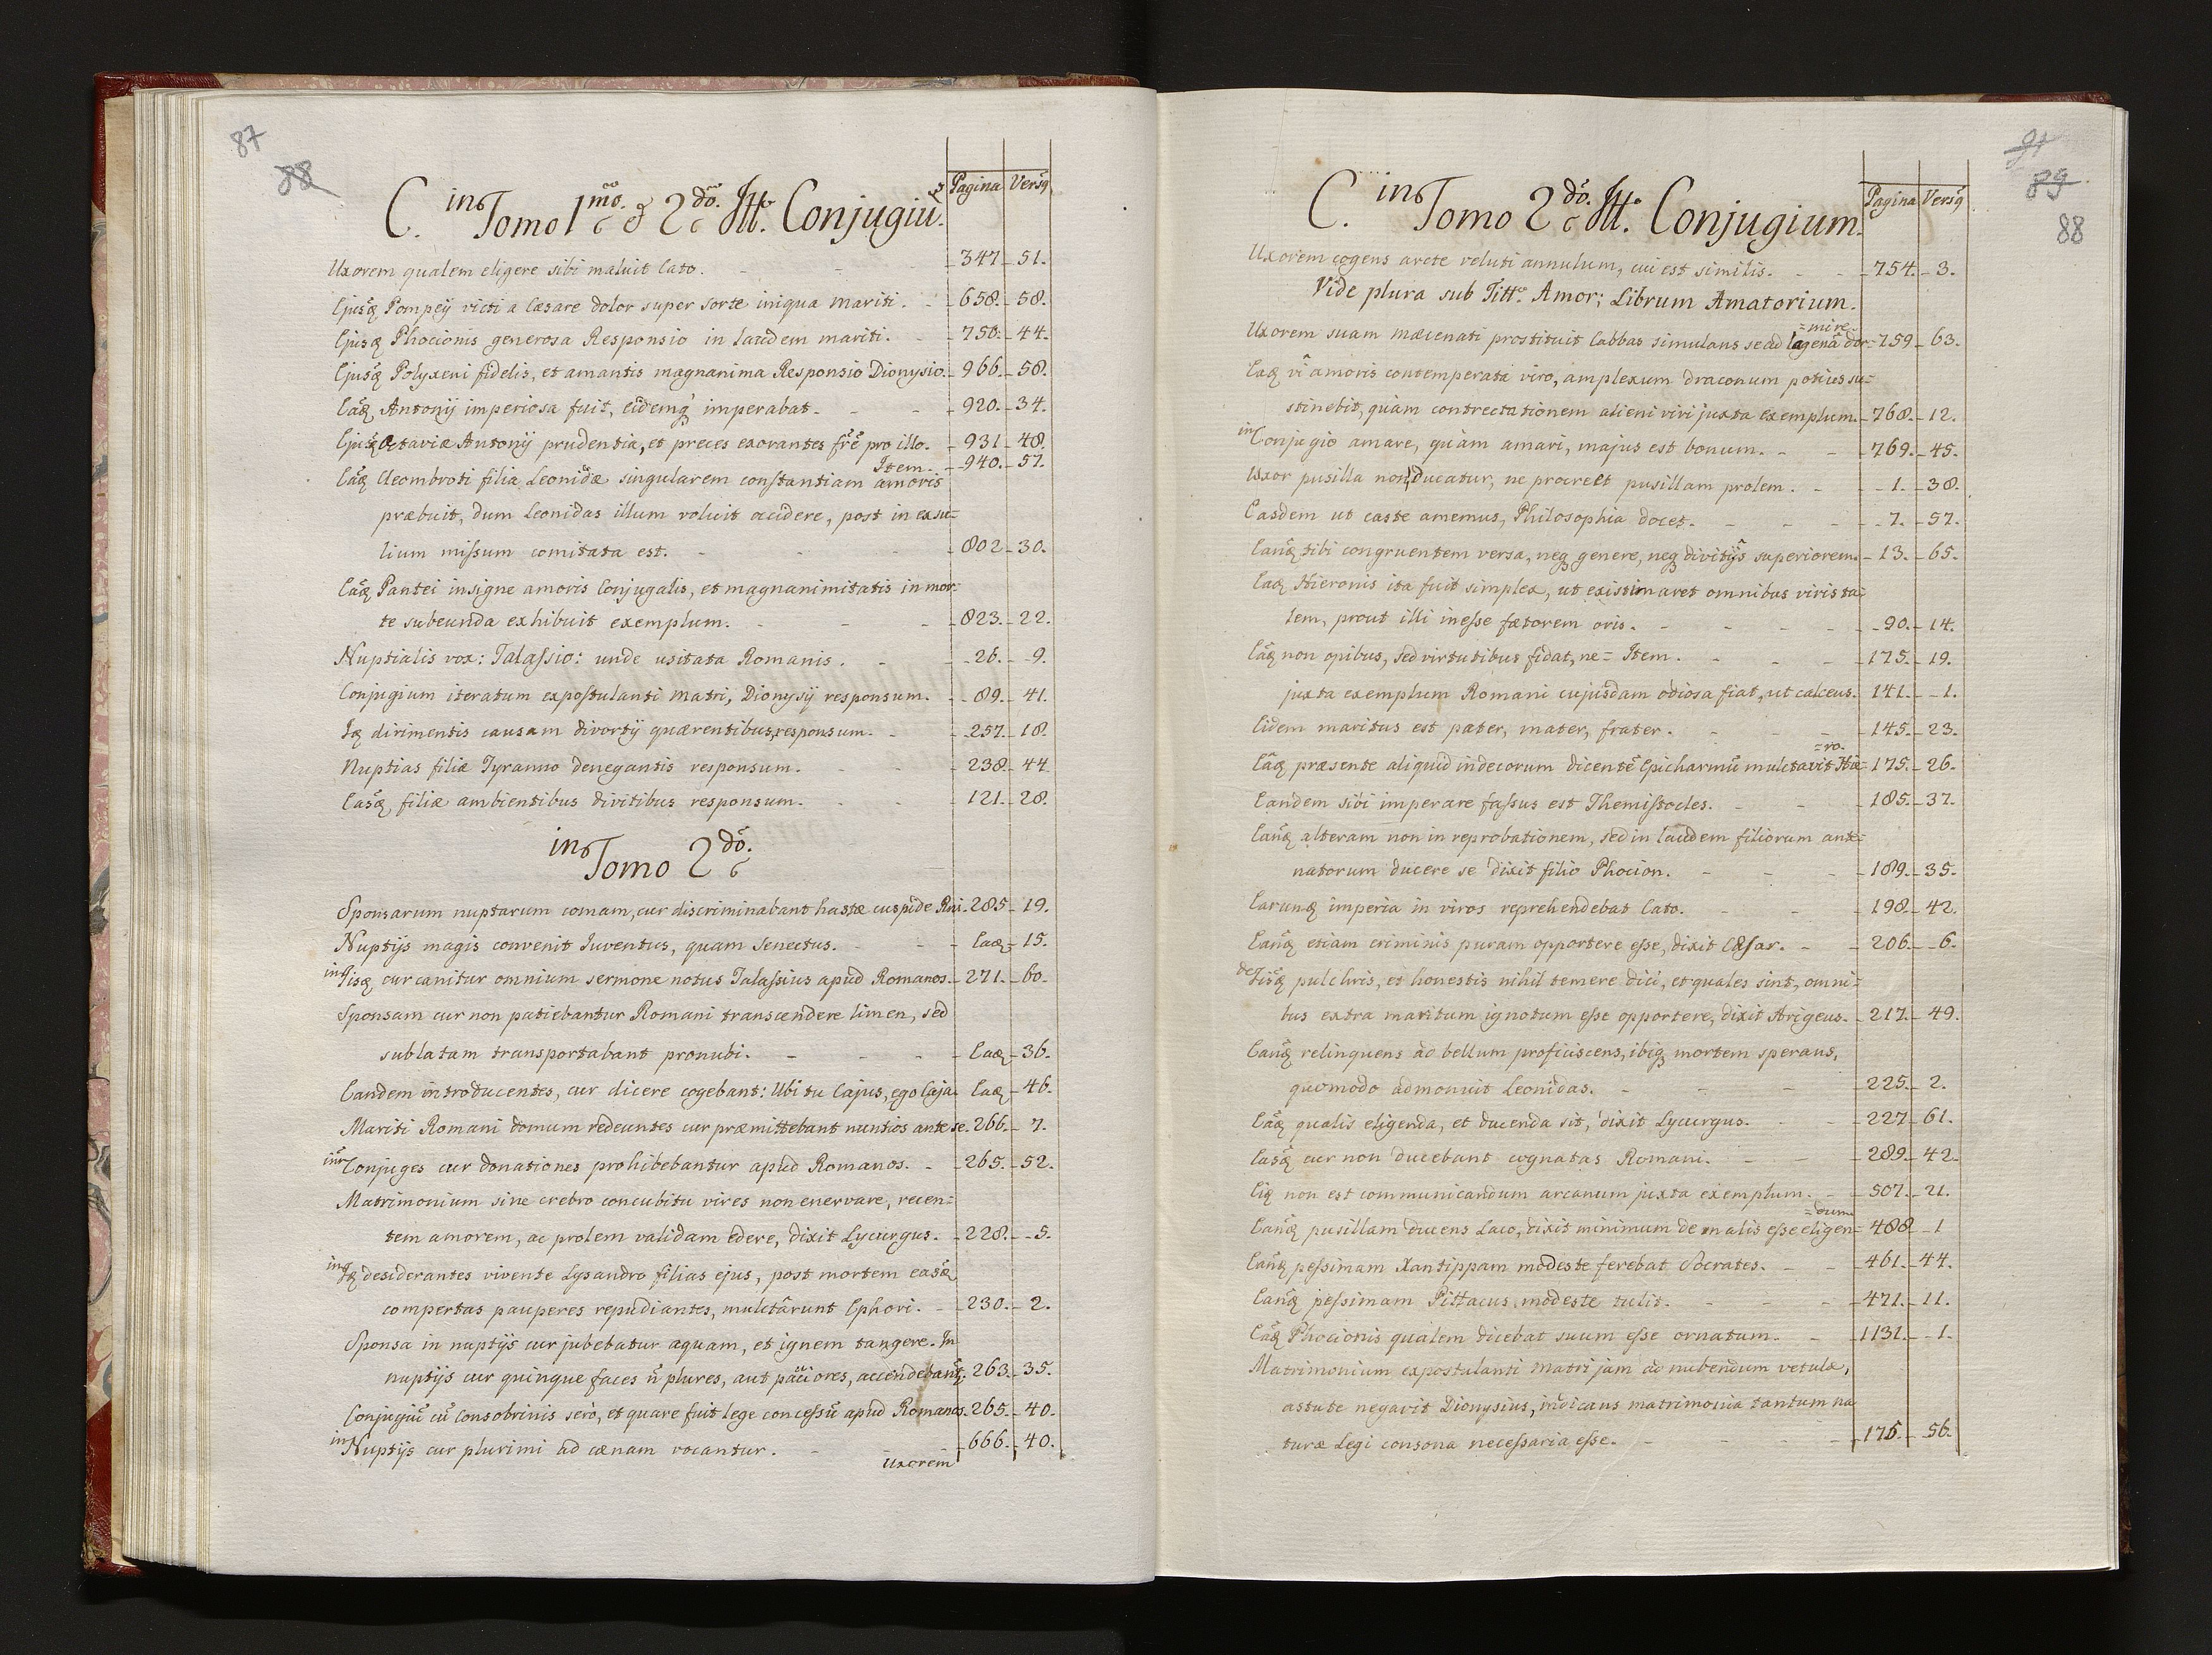 87
88
C. in Tomo 1mo. & 2do. Titt. Conjugiū.
Pagina Versq
Uxorem qualem eligere sibi maluit Cato. - 347. - 51.
Ejusq Pompeÿ victi a Cæsare dolor super sorte iniqua mariti. - 658. - 58.
Ejusq Phocionis generosa Responsio in laudem mariti. - 750. - 44.
Ejusq Polyxeni fidelis, et amantis magnanima Responsio Dionysio. - 966. - 58.
Eaq Antonÿ imperiosa fuit, eidemq imperabat. - 920. - 34.
Ejusq Octaviæ Antonÿ prudentia, et preces exorantes frē pro illo. - 931. - 48.
Item. - 940. - 57.
Eaq Cleombroti filia Leonidæ singularem constantiam amoris
præbuit, dum Leonidas illum voluit occidere, post in exsi=
lium missum comitata est. - 802 - 30.
Eaq Pantei insigne amoris Conjugalis, et magnanimitatis in mor=
te subeunda exhibuit exemplum. - 823. - 22.
Nuptialis vox: Talassio: unde usitata Romanis. - 26. - 9.
Conjugium iteratum expostulanti Matri, Dionysÿ responsum. - 89. - 41.
Iq dirimentis causam divortÿ quærentibus, responsum. - 257. - 18.
Nuptias filiæ Tyranno denegantis responsum. - 238. - 44.
Easq filiæ ambientibus divitibus responsum. - 121. - 28.
in Tomo 2do.
Sponsarum nuptarum comam, cur discriminabant hastæ cuspide Rni. 285 - 19.
Nuptÿs magis convenit Juventus, quam senectus. - Eaq - 15.
in Iisq cur canitur omnium sermone notus Talassius apud Romanos. - 271. - 60.
Sponsam cur non patiebantur Romani transcendere limen, sed
sublatam transportabant pronubi. - Eaq - 36.
Eandem introducentes, cur dicere cogebant: Ubi tu Cajus, ego Caja. Eaq - 46.
Mariti Romani domum redeuntes cur præmittebant nuntios ante se. 266. - 7.
inr Conjuges cur donationes prohibebantur apud Romanos. - 265. - 52.
Matrimonium sine crebro concubitu vires non enervare, recen=
tem amorem, ac prolem validam edere, dixit Lycurgus. - 228. - 5.
in Iq desiderantes vivente Lysandro filias ejus, post mortem easq
compertas pauperes repudiantes, mulctârunt Ephori. - 230. - 2.
Sponsa in nuptÿs cur jubebatur aquam, et ignem tangere. In
nuptÿs cur quinque faces n̄ plures, aut pauciores, accendebant. 263. - 35.
Conjugiū cū Consobrinis serò, et quare fuit lege concessū apud Romanos. 265. - 40.
in Nuptÿs cur plurimi ad cænam vocantur. - 666. - 40.
Uxorem
91
89
88
C. in Tomo 2do. Titt. Conjugium.
Pagina Versq
Uxorem cogens arcte veluti annulum, cui est similis. - 754. - 3.
Vide plura sub Titto. Amor; Librum Amatorium.
=mire.
Uxorem suam mæcenati prostituit Cabbas simulans se ad lagenā dor= 759 - 63.
Eaq vi amoris contemperata viro, amplexum draconum potius su=
stinebit, quàm contrectationem alieni viri juxta exemplum. - 768. - 12.
in Conjugio amare, quàm amari, majus est bonum. - 769. - 45.
Uxor pusilla non ducatur, ne procreet pusillam prolem. - 1. - 38.
Easdem ut caste amemus, Philosophia docet. - 7. - 57.
Eanq tibi congruentem versa, neq genere, neq divitÿs superiorem. - 13. - 65.
Eaq Hieronis ita fuit simplex, ut existimaret omnibus viris ta=
lem, prout illi inesse fætorem oris. - 90. - 14.
Eaq non opibus, sed virtutibus fidat, ne= Item. - 175. - 19.
juxta exemplum Romani cujusdam odiosa fiat, ut calceus. - 141. - 1.
Eidem maritus est pater, mater, frater. - 145. - 23.
=ro.
Eâq præsente aliquid indecorum dicentē Epicharmū mulctavit Hie= 175. - 26.
Eandem sibi imperare fassus est Themistocles. - 185. - 37.
Eanq alteram non in reprobationem, sed in laudem filiorum ante=
natorum ducere se dixit filio Phocion. - 189. - 35.
Earunq imperia in viros reprehendebat Cato. - 198. - 42.
Eanq etiam criminis puram opportere esse, dixit Cæsar. - 206. - 6.
de Iisq pulchris, et honestis nihil temere dici, et quales sint, omni=
bus extra maritum ignotum esse opportere, dixit Arigeus. - 217. - 49.
Eanq relinquens ad bellum proficiscens, ibiq mortem sperans,
quomodo admonuit Leonidas. - 225. - 2.
Eaq qualis eligenda, et ducenda sit, dixit Lycurgus. - 227 - 61.
Easq cur non ducebant cognatas Romani. - 289. - 42.
Eiq non est communicandum arcanum juxta exemplum. - 507. - 21.
=dum
Eanq pusillam ducens Laco, dixit minimum de malis esse eligen= 488 - 1
Eanq pessimam Xantippam modeste ferebat Socrates. - 461. - 44.
Eanq pessimam Pittacus modeste tulit. - 471. - 11.
Eaq Phocionis qualem dicebat suum esse ornatum. - 1131. - 1.
Matrimonium expostulanti matri jam ad nubendum vetulæ,
astute negavit Dionysius, indicans matrimonia tantum na
turæ Legi consona necessaria esse. - 175. - 56.